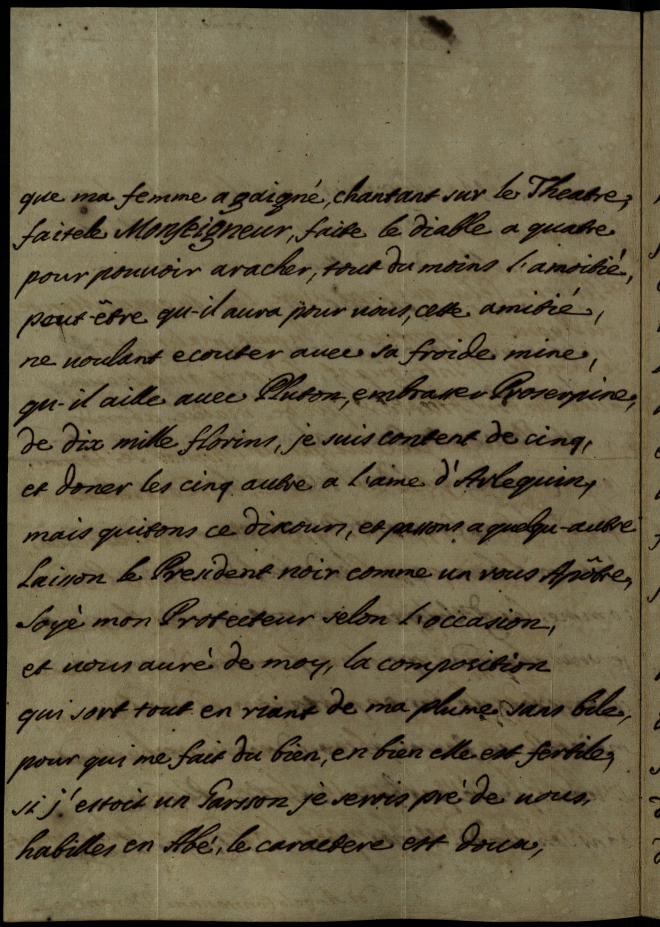 que ma femme a gaigné, chantant sur le Theatre,
faitele Monseigneur, faite le diable a quatre
pour pouvoir aracher, tout du moins l'amoitié,
peut-être qu-il aura pour vous, cette amitié,
ne voulant ecouter avec sa froide mine,
qu-il aille avec Pluton, embrasser Proserpine,
de dix mille florins, je suis content de cinq,
et doner les cinq autre a l'ame d'Arlequin,
mais quitons ce discours, et passons a quelqu-autre
Laison le President noir comme un vous Apôtre,
Soyé mon Protecteur selon l'occasion,
et vous auré de moy, la composition
qui sort tout en riant de ma plume sans bile,
pour qui me fait du bien, en bien elle est fertile,
si j'estoit un Garsson je serois pré de vous,
habilles en Abé, le caractere est doux,